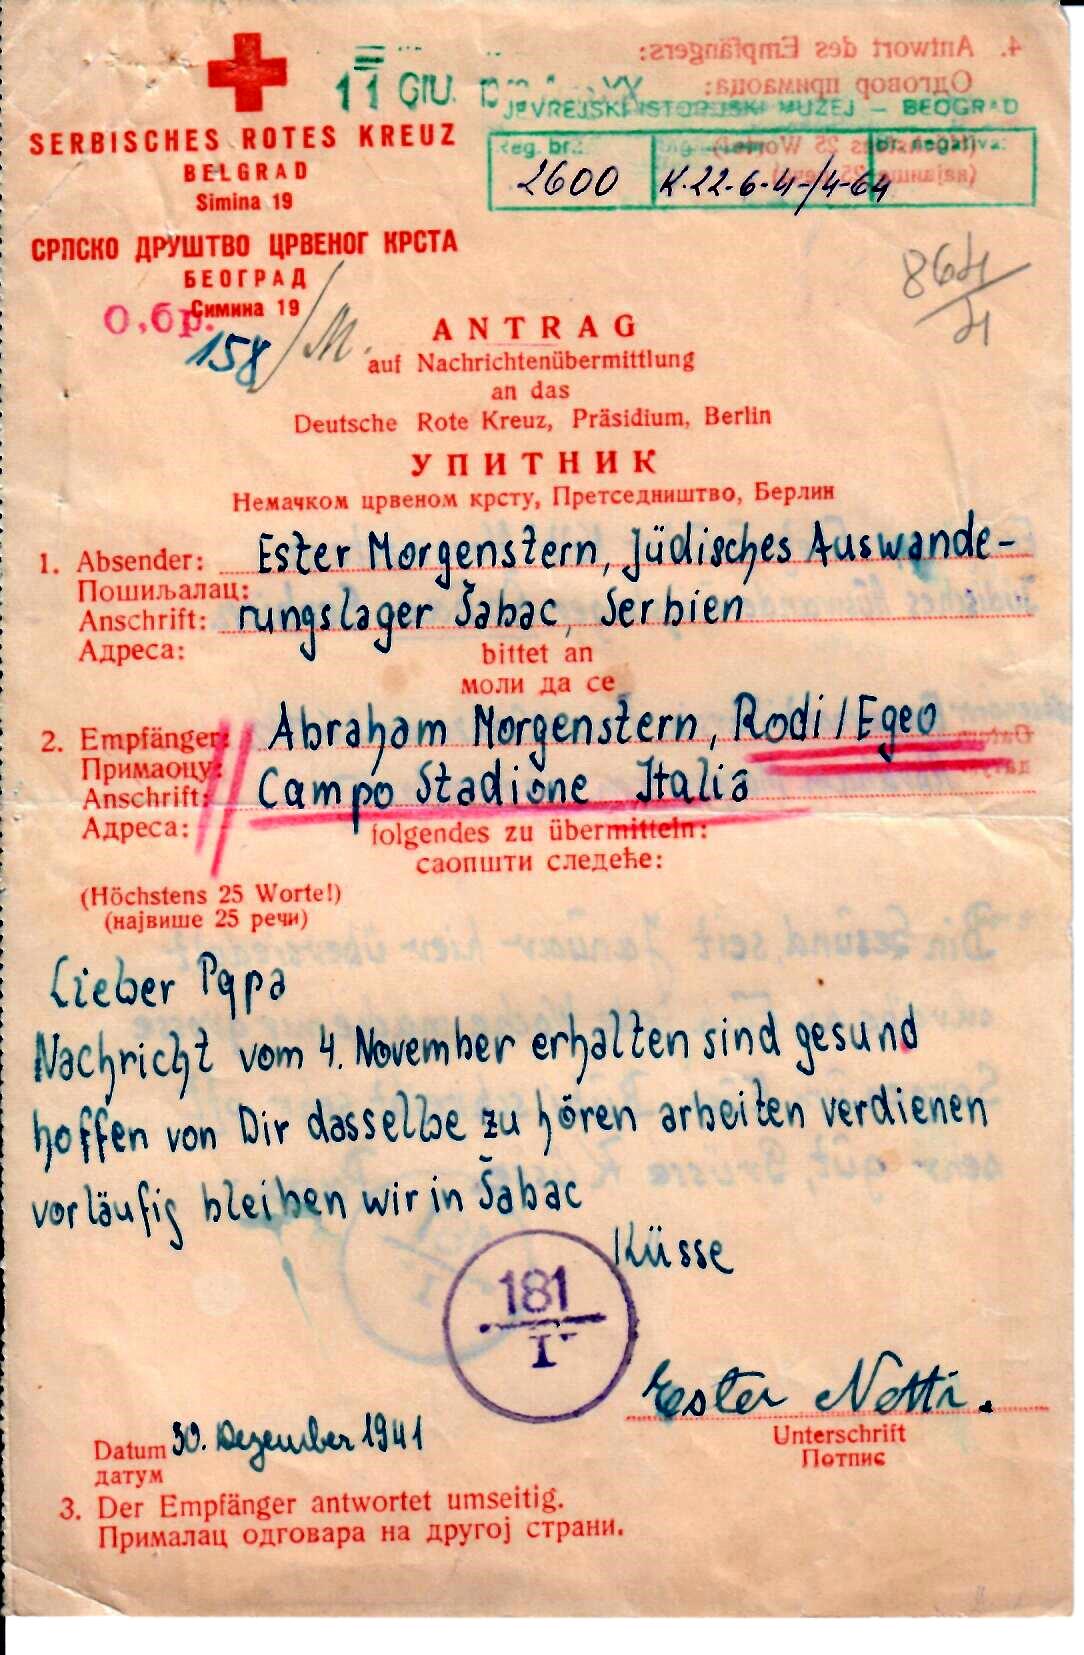 SERBISCHES ROTES KREUZ
BELGRAD
Simina 19
СРПСКО ДРУШТВО ЦРВЕНОГ КРСТА
БЕОГРАД
Симина 19
О.бр.
158/M.
11 GIU.
4. Antwort des Empfängers:
Одговор примаоца:
JEVREJSKI ISTORIJSKI MUZEJ – BEOGRAD
Reg. br.:
br. negativa:
2600
K.22-6-4-/4-64
864/4
ANTRAG
auf Nachrichtenübermittlung
an das
Deutsche Rote Kreuz, Präsidium, Berlin
УПИТНИК
Немачком црвеном крсту, Претседништво, Берлин
1. Absender: Ester Morgenstern, Jüdisches Auswande-
Пошиљалац:
Anschrift: rungslager Šabac, Serbien
Адреса:
bittet an
моли да се
2. Empfänger: Abraham Morgenstern, Rodi/Egeo
Примаоцу:
Anschrift: Campo Stadione Italia
Адреса:
folgendes zu übermitteln:
саопшти следеће:
(Höchstens 25 Worte!)
(највише 25 речи)
Lieber Papa
Nachricht vom 4. November erhalten sind gesund
hoffen von Dir dasselbe zu hören arbeiten verdienen
vorläufig bleiben wir in Šabac
Küsse
181
I
Ester Netti.
Datum 30. Dezember 1941
датум
Unterschrift
Потпис
3. Der Empfänger antwortet umseitig.
Прималац одговара на другој страни.